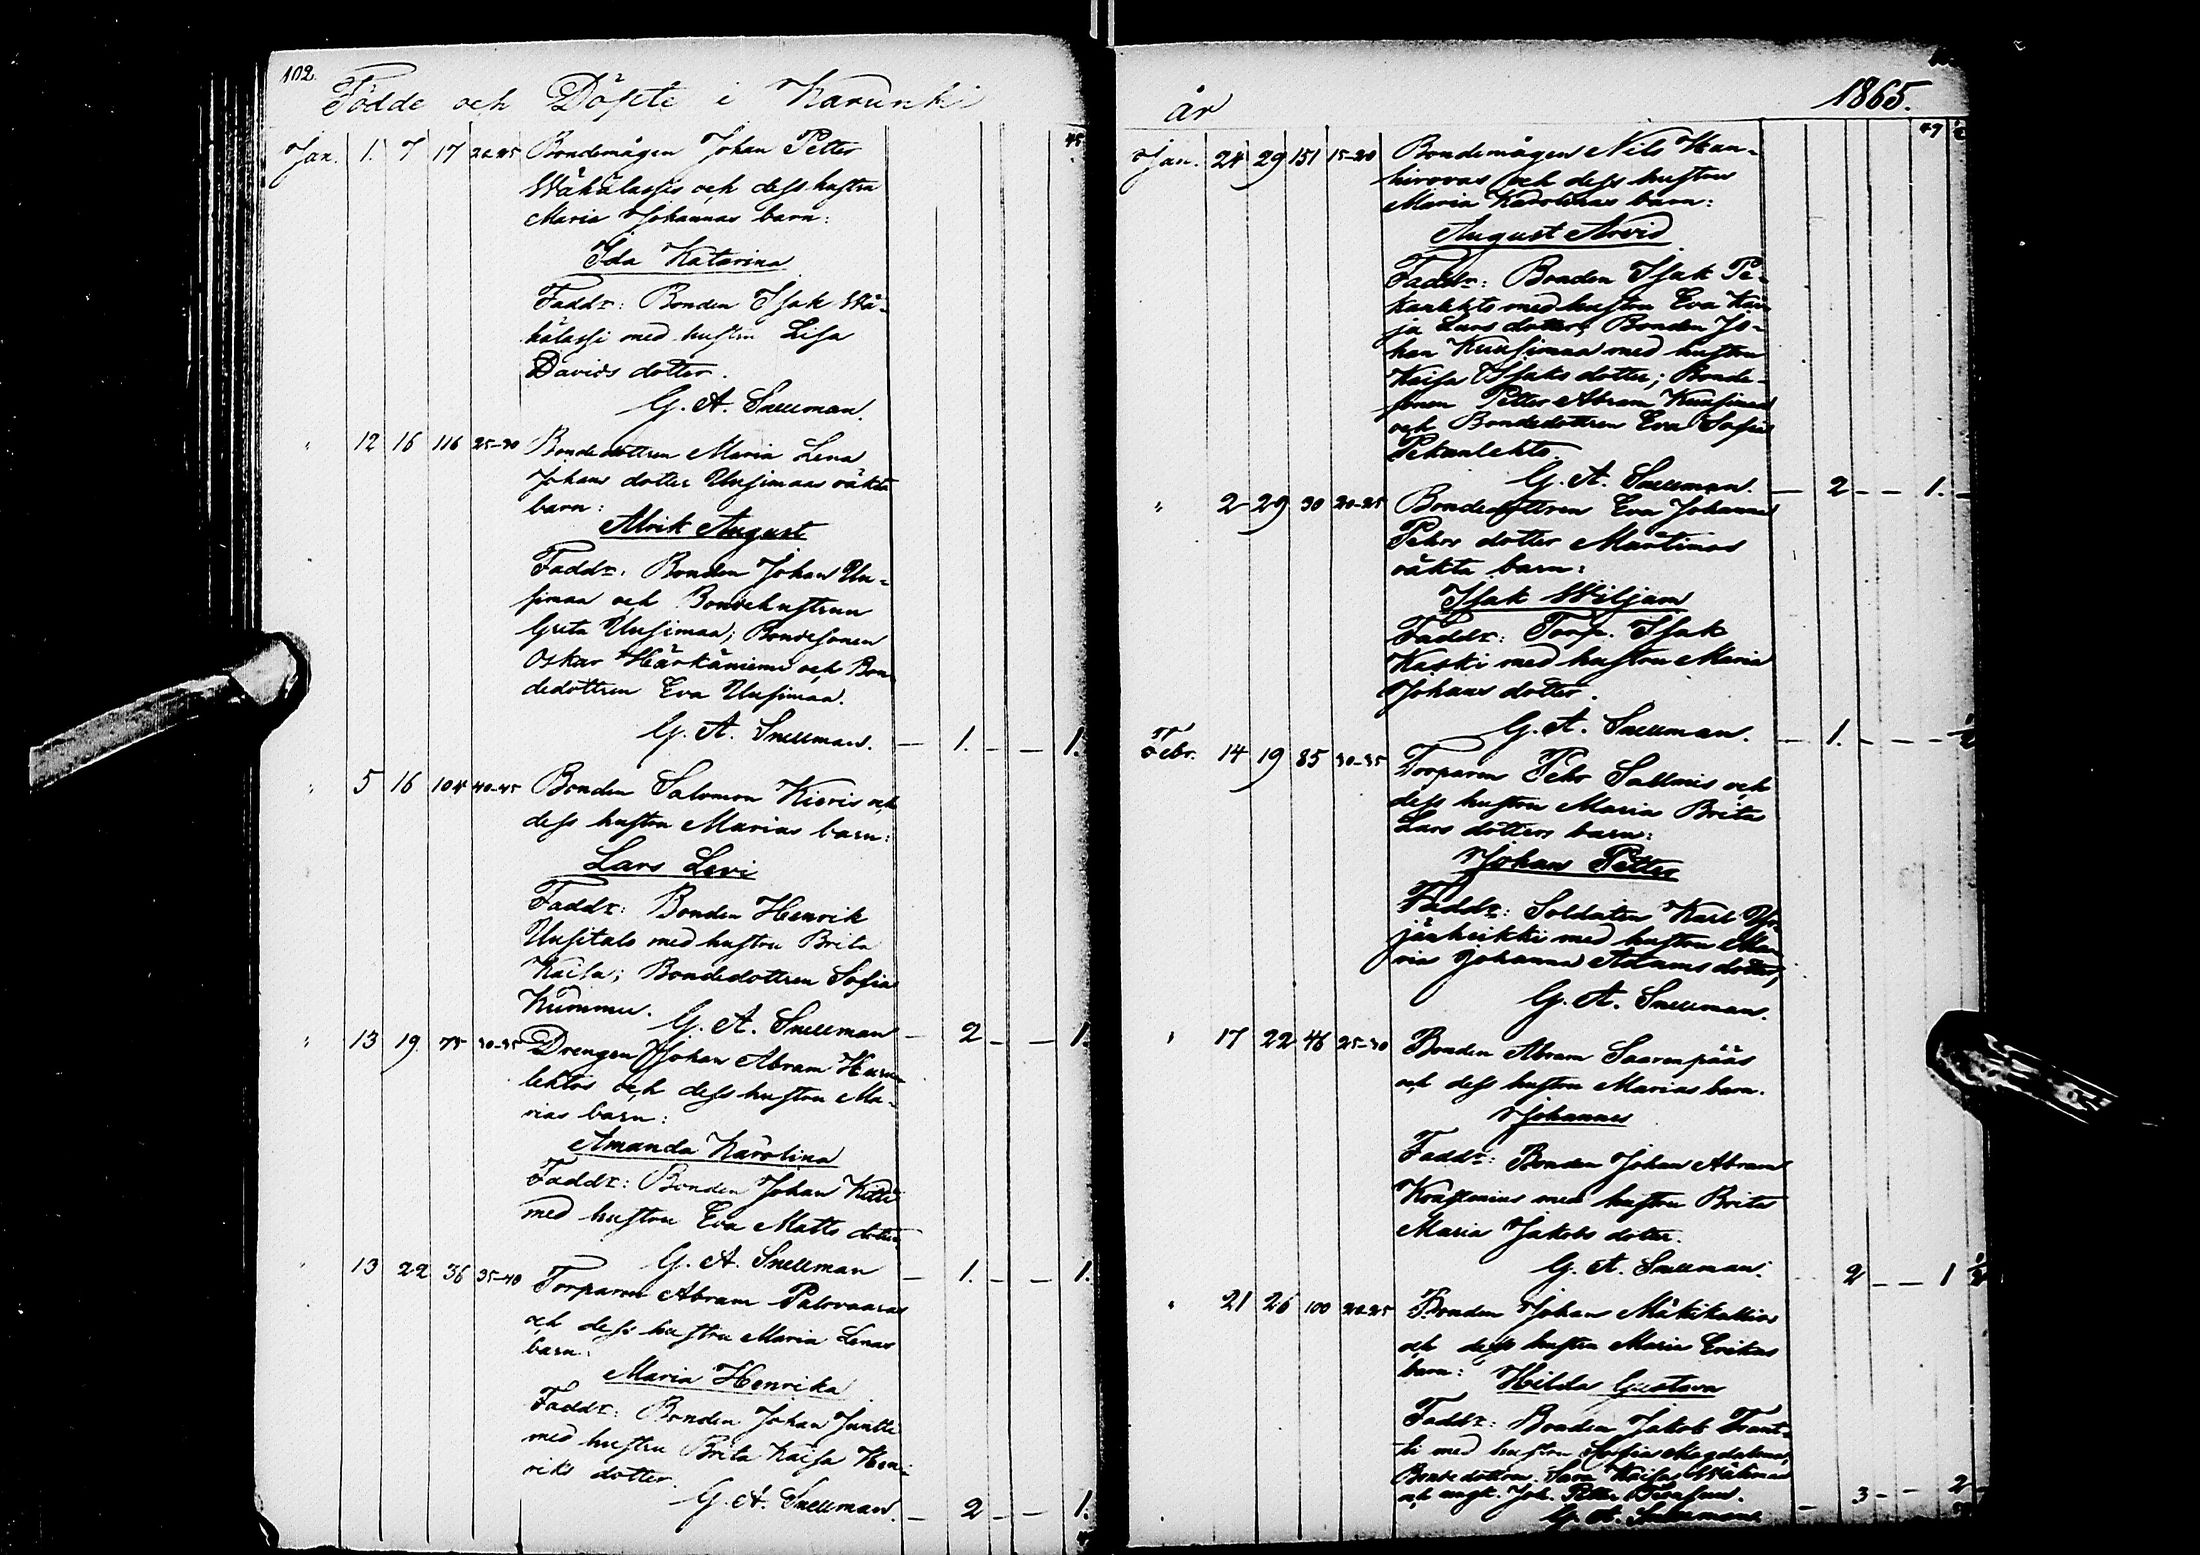 102.
Födde och Döpte i Karunki
45
Jan. 1. 7 17 20-25 Bondemågen Johan Petter
Wähälassis och dess hustru
Maria Johannas barn:
Ida Katarina
Faddr: Bonden Isak Wä-
hälassi med hustru Lisa
Davids dotter.
G. A. Snellman.
" 12 16 116 25-30 Bondedottren Maria Lena
Johans dotter Uusimaas oäkta
barn:
Alrik August
Faddr: Bonden Johan Uu-
simaa och Bondehustrun
Greta Uusimaa; Bondesonen
Oskar Härkäniemi och Bon-
dedottren Eva Uusimaa.
G. A. Snellman. — 1. — — 1.
" 5 16 104 40-45 Bonden Salomon Kieris och
dess hustru Marias barn:
Lars Levi
Faddr: Bonden Henrik
Uusitalo med hustru Brita
Kaisa; Bondedottren Sofia
Kummu.
G. A. Snellman — 2 — — 1.
" 13 19. 75 30-35 Drengen Johan Abram
lehtos och dess hustru Ma-
rias barn:
Amanda Karolina
Faddr: Bonden Johan Kitti
med hustru Eva Matts dotter.
G. A. Snellman — 1. — — 1.
" 13 22 36 35-40 Torparen Abram Palovaaras
och dess hustru Maria Lenas
barn:
Maria Henrika
Faddr: Bonden Johan Juntti
med hustru Brita Kaisa Hen-
riks dotter.
G. A. Snellman. — 2 — — 1.
år 1865.
47
Jan. 24 29 151 15-20 Bondemågen Nils Kan-
hirovas och dess hustrus
Maria Karolinas barn:
August Arvid
Faddr: Bonden Isak Pe-
kanlehto med hustru Eva
Lars dotter; Bonden Jo-
han Kuusimaa med hustru
Kaisa Isaks dotter; Bonde-
sonen Petter Abram Kuusimaa
och Bondedottren Eva Sofia
Pekanlehto.
G. A. Snellman. — 2 — — 1. —
" 2 29 30 20-25 Bondedottren Eva Johanna
Pehrs dotter Martimos
oäkta barn:
Isak Wiljam
Faddr: Torp. Isak
Kaski med hustru Maria
Johans dotter.
G. A. Snellman. — 1. — — — 1/2
Febr. 14 19 85 30-35 Torparen Pehr Salmis och
dess hustru Maria Brita
Lars dotters barn:
Johan Petter
Faddr: Soldaten Karl
järheikki med hustru Ma-
ria Johanna Adams dotter;
G. A. Snellman.
" 17 22 46 25-30 Bonden Abram Saarenpääs
och dess hustru Marias barn.
Johannes
Faddr: Bonden Johan Abram
med hustru Brita
Maria Jakobs dotter.
G. A. Snellman. — 2 — — 1 1/2
" 21 26 100 20-25 Bonden Johan Mäkikallios
och dess hustru Maria Erikas
barn: Hilda Gustava
Faddr: Bonden Jakob Fant-
ti med hustru Sofia Magdalena;
Bondedottren Sara Kaisa
och yngl. Joh. Petter
G. A. Snellman. — 3 — — 2 —